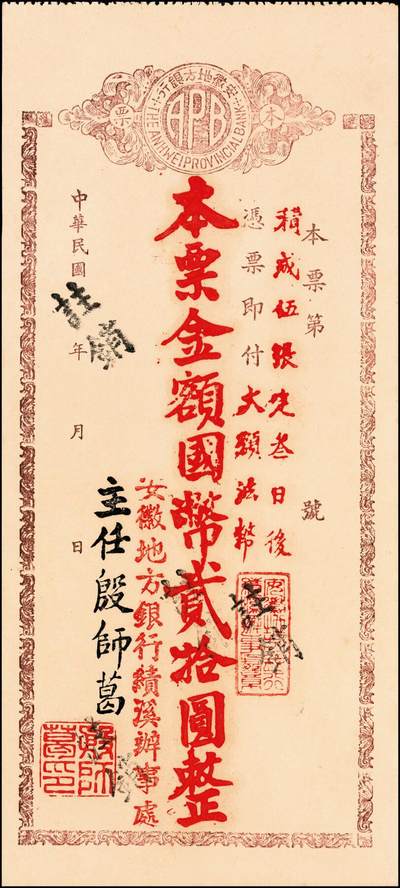 行銀方地徽安
THE ANHWEI PROVINCIAL BANK
APB
本
票
本票第 號
積成伍張定叁日後
憑票即付大額法幣
本票金額國幣貳拾圓整
安徽地方銀行績溪辦事處
主任殷師葛
中華民國 年 月 日
註銷
註銷